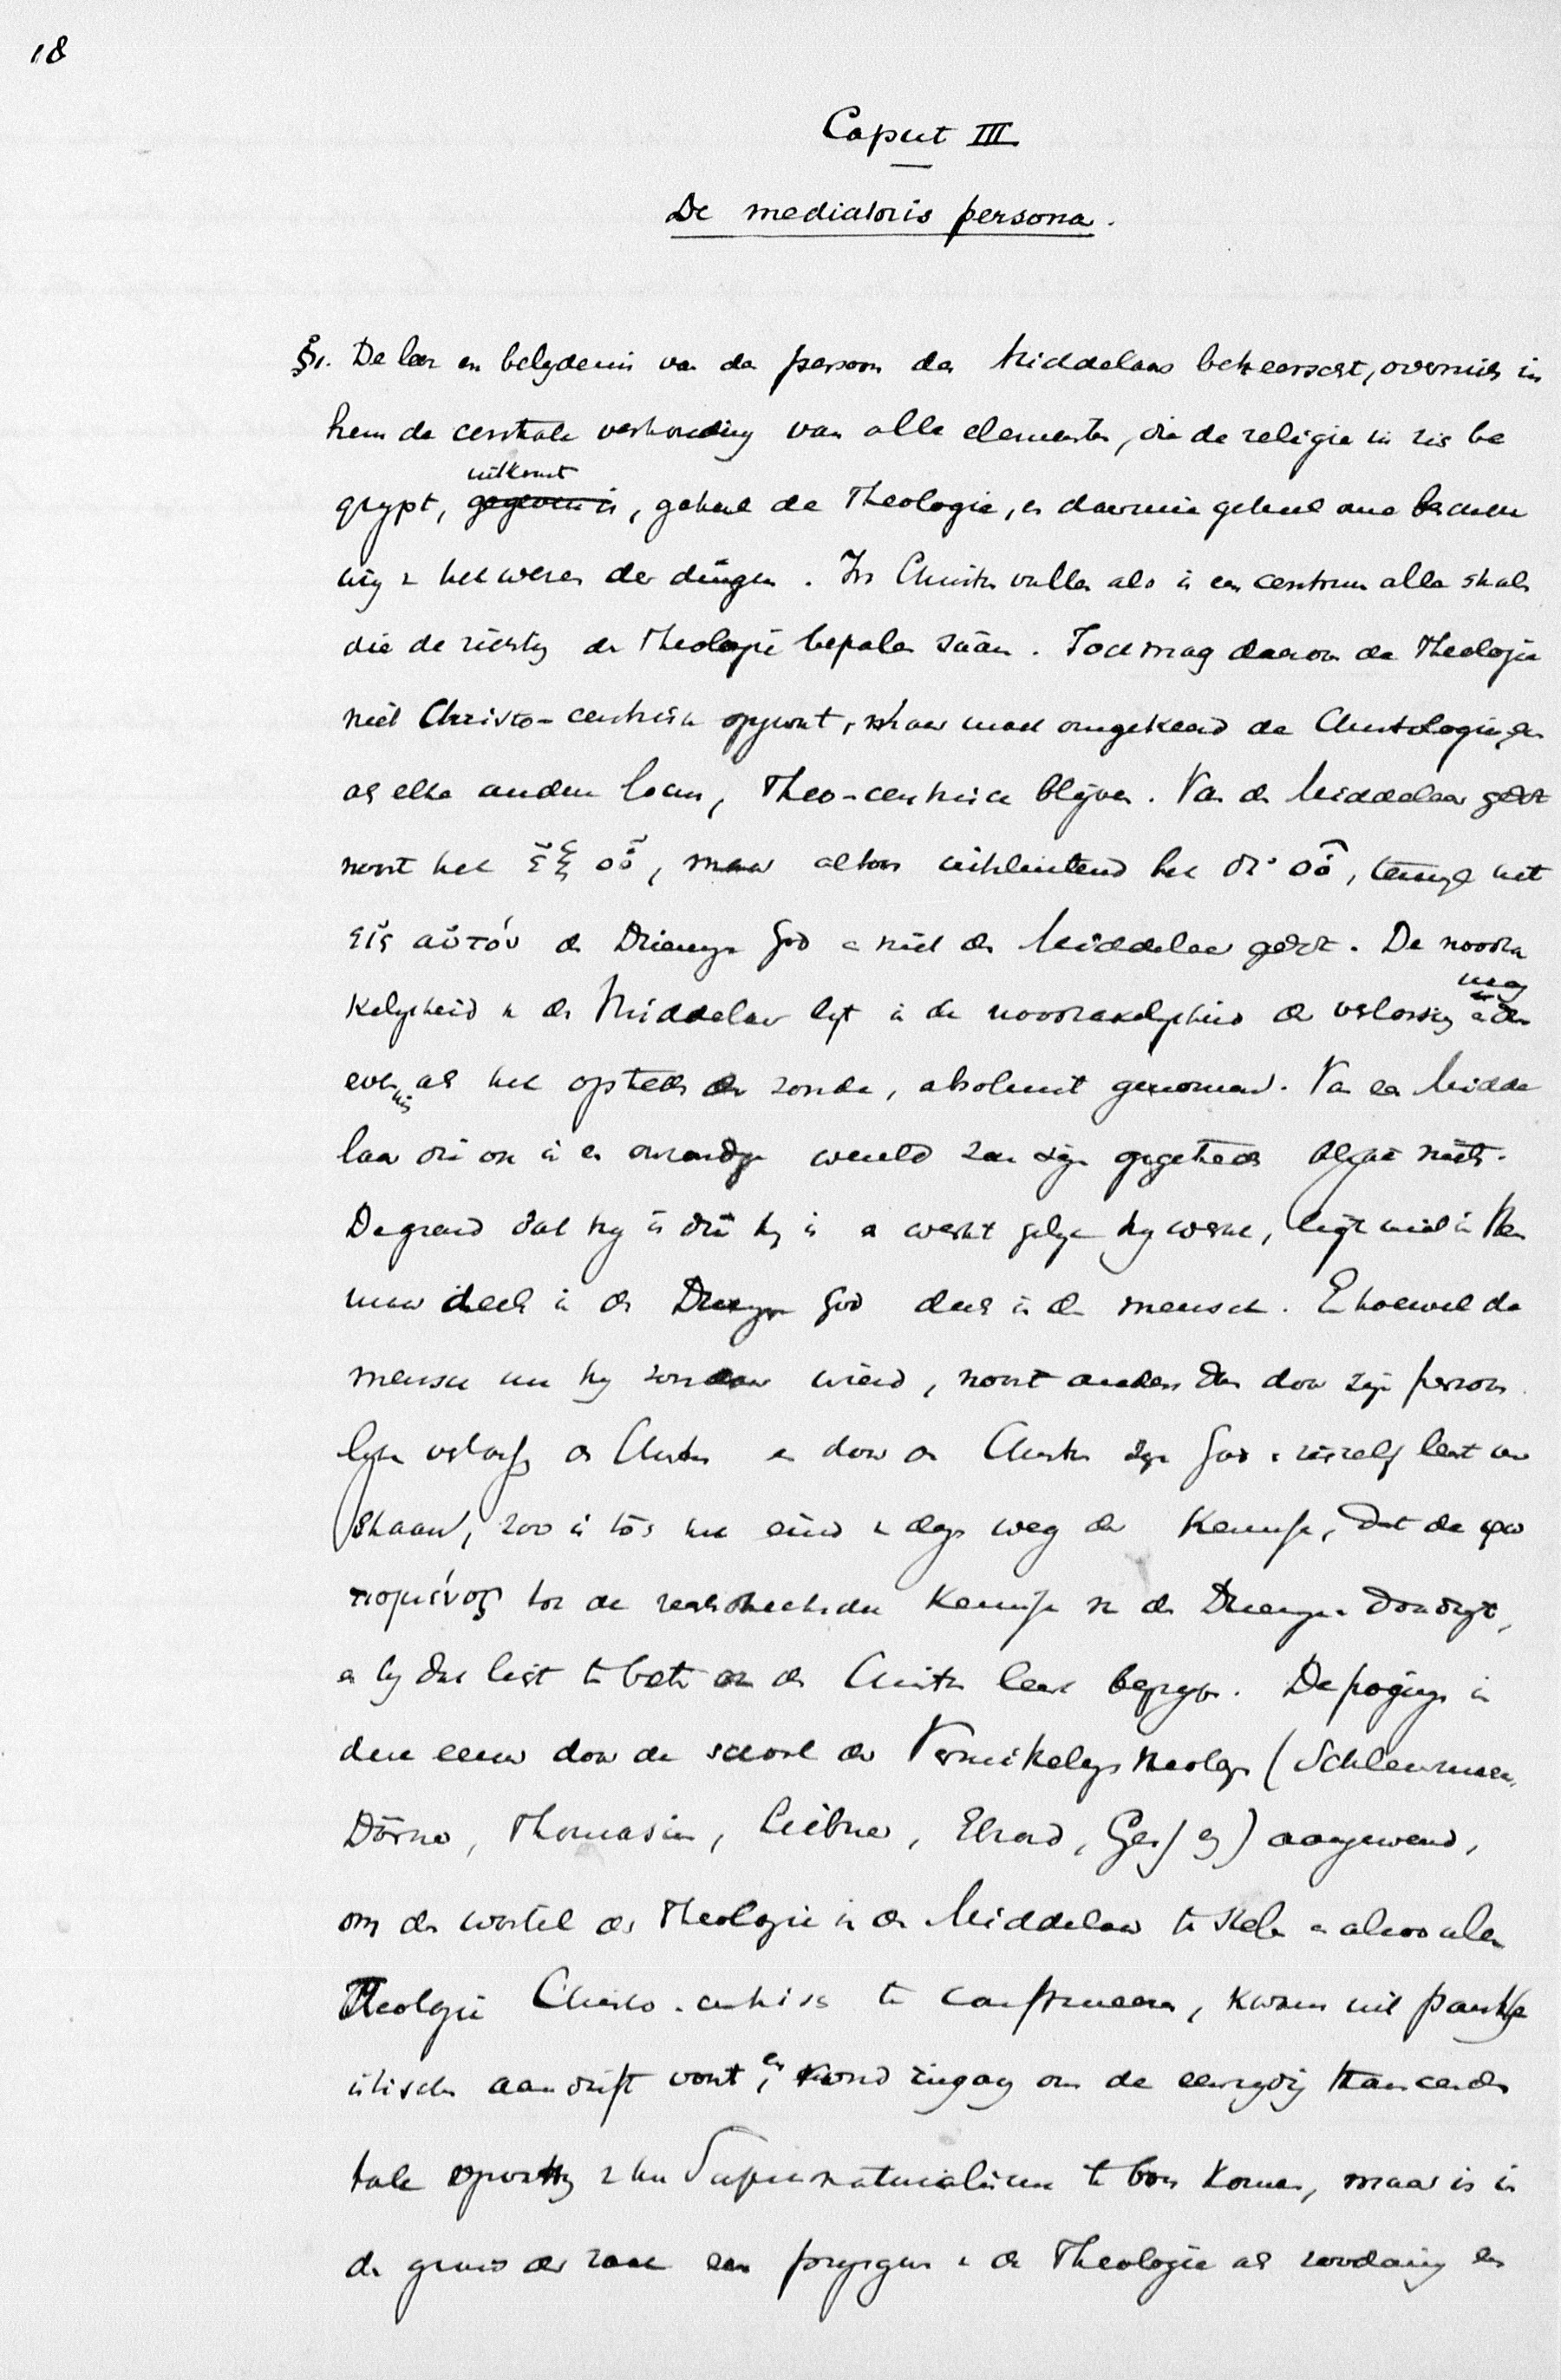 18
Caput III
De mediatoris persona.
§1. De leer en belydenis van de persoon des Middelaars beheerscht, overmits in
hem de centrale verhouding van alle elementen, die de religie in zich be
uitkomt
grypt, gegeven is, geheel de Theologie, en daarmee geheel onze beschou
wing v het wezen der dingen. In Christus vallen als in een centrum alle stralen
die de richting der Theologie bepalen saam. Toch mag daarom de Theologie
niet Christo-centrisch opgevat, maar moet omgekeerd de Christologie, even
als elke andere locus, Theo-centrisch blijven. Van den Middelaar geldt
nooit het ἐξ οὗ, maar altoos uitsluitend het δι' οὗ, terwyl het
εἰς αὐτόν den Drieenigen God en niet den Middelaar geldt. De noodza
kelykheid v den Middelaar ligt in de noodzakelykheid der verlossing
evenmin als het optreden der zonde, absoluut genomen. Van een Midde
laar die ook in een onzondige wereld zou zijn opgetreden blykt niets.
De grond dat hy is die hy is en werkt gelyk hy werkt, ligt niet in Hem
maar deels in den Drieenigen God deels in den mensch. En hoewel de
mensch nu hy zondaar wierd, nooit anders dan door zyn persoon
lyke verlossing den Christus en door den Christus zyn God en zichzelf leert ver
staan, zoo is toch het eind v dezen weg der kennisse, dat de φω
τισμένος tot de rechtstreeksche kennisse v den Drieenigen doordringt,
en by dat licht te beter ook den Christus leert begrypen. De poging in
deze eeuw door de school der Vermittelungstheologen (Schleiermacher,
Dörner, Thomasius, Liebner, Ebrard, Gess eg) aangewend,
om den wortel der Theologie in den Middelaar te stellen en alzoo alle
Theologie Christo-centrisch te construeeren, kwam uit panthe
istische aandrift voort, en vond ingang om de eenzydig transcenden
tale opvatting v het Supranaturalisme te boven komen, maar is in
den grond der zaak een prysgeven v de Theologie als zoodanig en